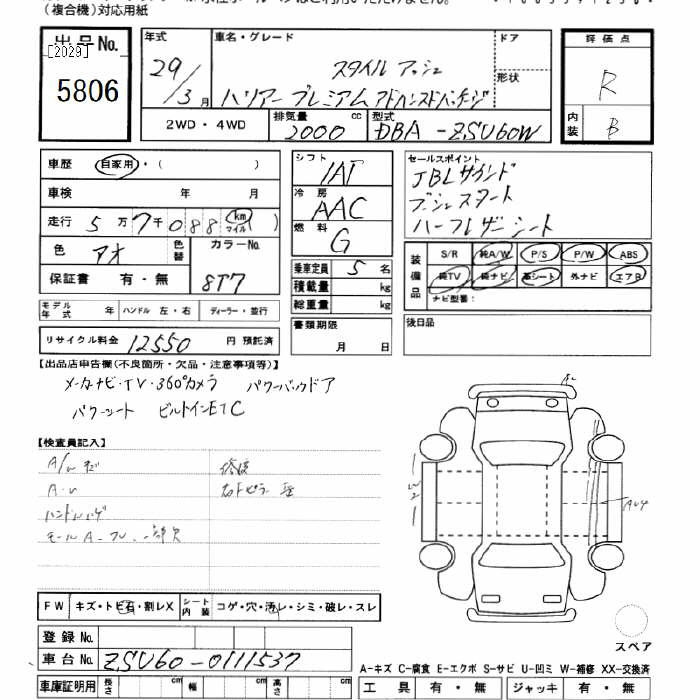 (複合機)対応用紙
出品No.
[2029]
5806
年式 車名・グレード ドア
29/3月 スタイル アッシュ 形状
ハリアー プレミアム アドバンスドパッケージ
2WD・4WD 排気量 cc 型式
2000 DBA-ZSU60W
評価点
R
内装
B
車歴 自家用・( )
車検 年 月
走行 5万7千088 km マイル ( )
色 アオ 色替 カラーNo.
8T7
保証書 有・無
モデル年式 年 ハンドル 左・右 ディーラー・並行
リサイクル料金 12550 円 預託済
シフト
IAT
冷房
AAC
燃料
G
乗車定員 5 名
積載量 kg
総重量 kg
書類期限
月 日
セールスポイント
JBLサウンド
プッシュスタート
ハーフレザーシート
装備品
S/R 純A/W P/S P/W ABS
純TV 純ナビ 革シート 外ナビ エアB
ナビ型番:
後日品
【出品店申告欄(不良箇所・欠品・注意事項等)】
メーカーナビ・TV・360°カメラ パワーバックドア
パワーシート ビルトインETC
【検査員記入】
修復
A
W2
スペア
FW キズ・トビ石・割レX シート内装 コゲ・穴・汚レ・シミ・破レ・スレ
登録No.
車台No. ZSU60-0111537
車庫証明用 長さ cm 幅 cm 高さ cm
A-キズ C-腐食 E-エクボ S-サビ U-凹ミ W-補修 XX-交換済
工具 有・無 ジャッキ 有・無